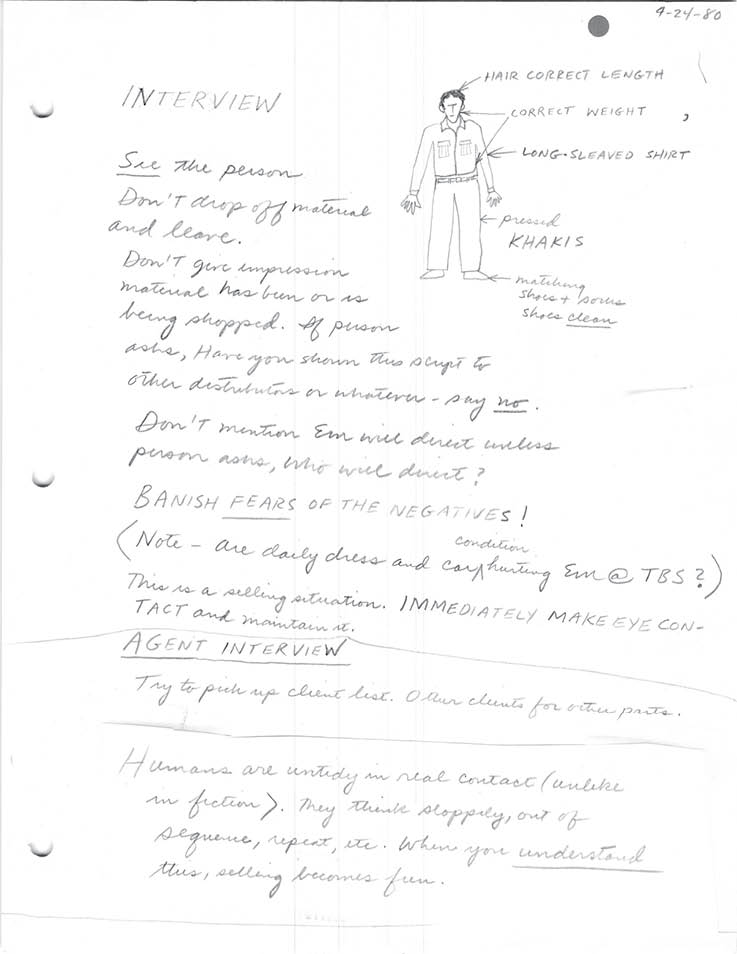 4-24-80
INTERVIEW
HAIR CORRECT LENGTH
CORRECT WEIGHT
LONG-SLEAVED SHIRT
pressed
KHAKIS
matching
shoes + socks
shoes clean
See the person
Don't drop off material
and leave.
Don't give impression
material has been or is
being shopped. If person
asks, Have you shown this script to
other distributors or whatever - say no.
Don't mention Em will direct unless
person asks, Who will direct?
BANISH FEARS OF THE NEGATIVES!
(Note - are daily dress and car condition hurting Em @ TBS?)
This is a selling situation. IMMEDIATELY MAKE EYE CON-
TACT and maintain it.
AGENT INTERVIEW
Try to pick up client list. Other clients for other parts.
Humans are untidy in real contact (unlike
in fiction). They think sloppily, out of
sequence, repeat, etc. When you understand
this, selling becomes fun.